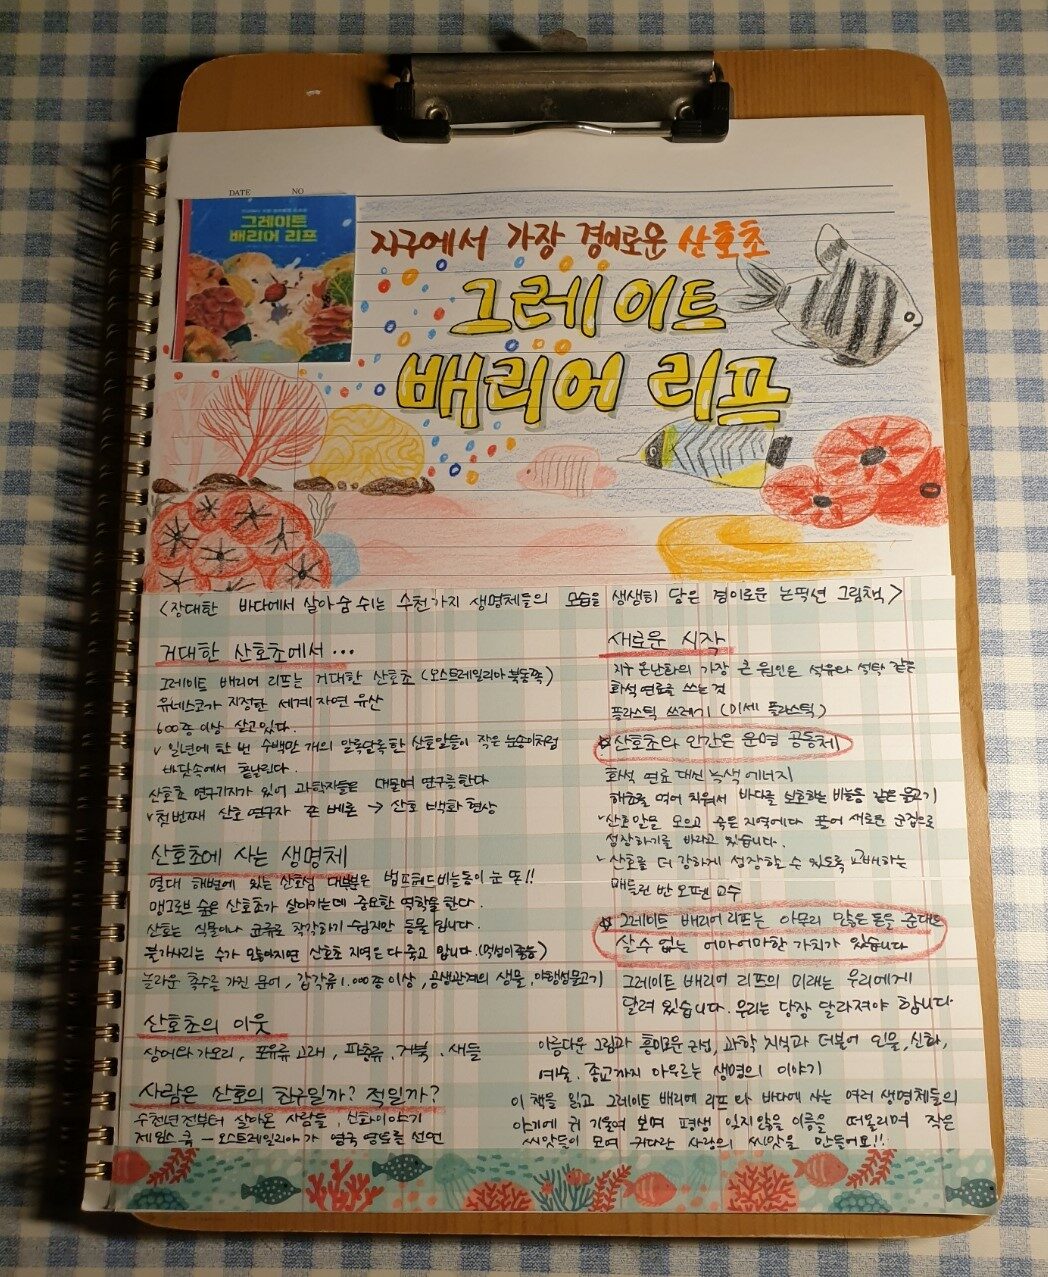 DATE NO
그레이트
배리어 리프
지구에서 가장 경이로운 산호초
그레이트
배리어 리프
<장대한 바다에서 살아 숨 쉬는 수천가지 생명체들의 모습을 생생히 담은 경이로운 논픽션 그림책>
거대한 산호초에서…
그레이트 배리어 리프는 거대한 산호초 (오스트레일리아 북동쪽)
유네스코가 지정한 세계 자연 유산
600종 이상 살고있다.
√ 일년에 한 번 수백만 개의 알록달록한 산호알들이 작은 눈송이처럼
바닷속에서 흩날린다.
산호초 연구기지가 있어 과학자들은 대물며 연구를 한다
√ 첫번째 산호 연구자 존 베론 → 산호 백화 현상
산호초에 사는 생명체
열대 해변에 있는 산호섬 대부분은 범프헤드비늘돔이 눈 똥!!
맹그로브 숲은 산호초가 살아가는데 중요한 역할을 한다.
산호는 식물이나 암류로 착각하기 쉽지만 동물입니다.
불가사리는 수가 많아지면 산호초 지역은 다 죽고 맙니다.(먹성이 좋음)
놀라운 촉수를 가진 문어, 갑각류 1,000종 이상, 공생관계의 생물, 야행성물고기
산호초의 이웃
상어와 가오리, 포유류 고래, 파충류, 거북, 새들
사람은 산호의 친구일까? 적일까?
수천년 전부터 살아온 사람들, 신화이야기
제임스 쿡 – 오스트레일리아가 영국 영토를 선언
새로운 시작
지구 온난화의 가장 큰 원인은 석유와 석탄 같은
화석 연료를 쓰는 것
플라스틱 쓰레기 (미세 플라스틱)
☆ 산호초와 인간은 운명 공동체
화석 연료 대신 녹색 에너지
해초를 먹어 치워서 바다를 보호하는 비늘돔 같은 물고기
√ 산호알을 모으고 죽은 지역에다 풀어 새로운 군집으로
성장하기를 바라고 있습니다.
√ 산호를 더 강하게 성장할 수 있도록 교배하는
매들런 반 오펜 교수
☆ 그레이트 배리어 리프는 아무리 많은 돈을 준대도
살 수 없는 어마어마한 가치가 있습니다
그레이트 배리어 리프의 미래는 우리에게
달려 있습니다. 우리는 당장 달라져야 합니다.
아름다운 그림과 흥미로운 구성, 과학 지식과 더불어 인물, 신화,
예술, 종교까지 아우르는 생명의 이야기
이 책을 읽고 그레이트 배리어 리프와 바다에 사는 여러 생명체들의
이야기에 귀 기울여 보며 평생 잊지않을 이름을 떠올리며 작은
씨앗들이 모여 커다란 사랑의 씨앗을 만들어요!!